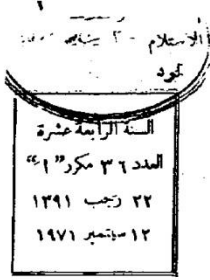 ١
الاستلام
السنة الرابعة عشرة
العدد ٣٦ مكرر "١"
٢٢ رجب ١٣٩١
١٢ سبتمبر ١٩٧١